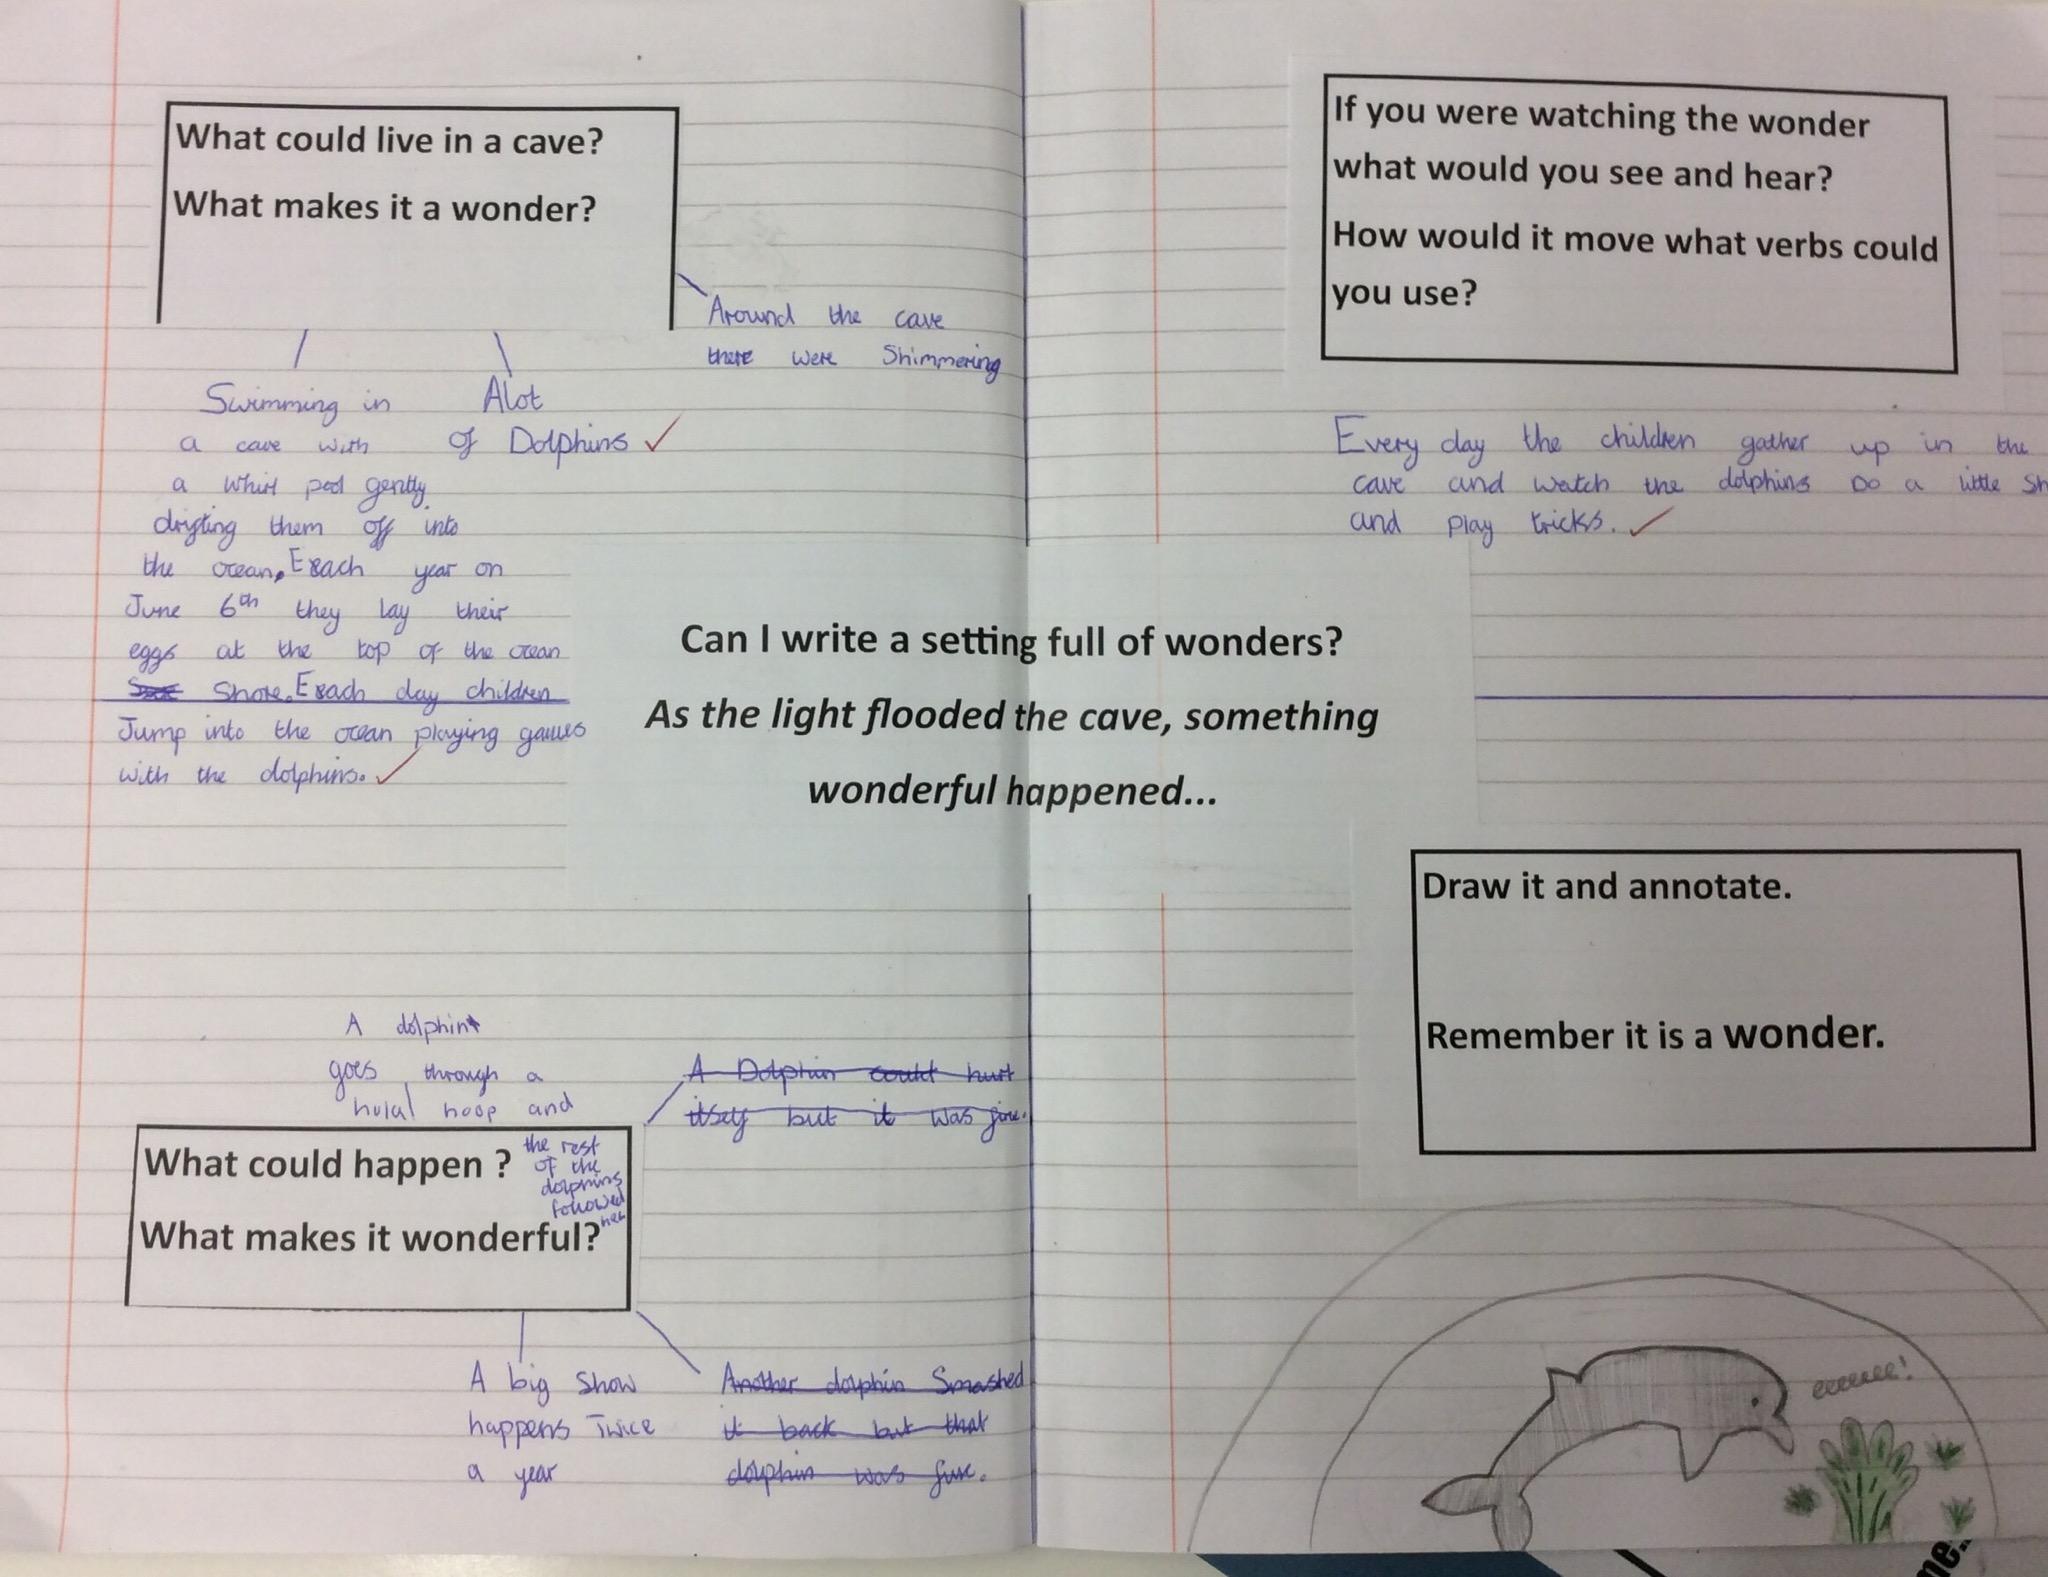 What could live in a cave?
What makes it a wonder?
Around the cave
there were Shimmering
Swimming in
a cave with
a whirl pool gently
drifting them off into
the ocean. Each year on
June 6th they lay their
eggs at the top of the ocean
Shore. Each day children
Jump into the ocean playing games
with the dolphins.
Alot
of Dolphins
If you were watching the wonder
what would you see and hear?
How would it move what verbs could
you use?
Every day the children gather up in the
cave and watch the dolphins Do a little Sh
and play tricks.
Can I write a setting full of wonders?
As the light flooded the cave, something
wonderful happened...
A dolphin
goes through a
hulal hoop and
the rest
of the
dolphins
followed
her
What could happen ?
What makes it wonderful?
A Dolphin could hurt
itself but it was fine.
A big Show
happens Twice
a year
Another dolphin Smashed
it back but that
dolphin was fine.
Draw it and annotate.
Remember it is a wonder.
eeeeeee!
me..